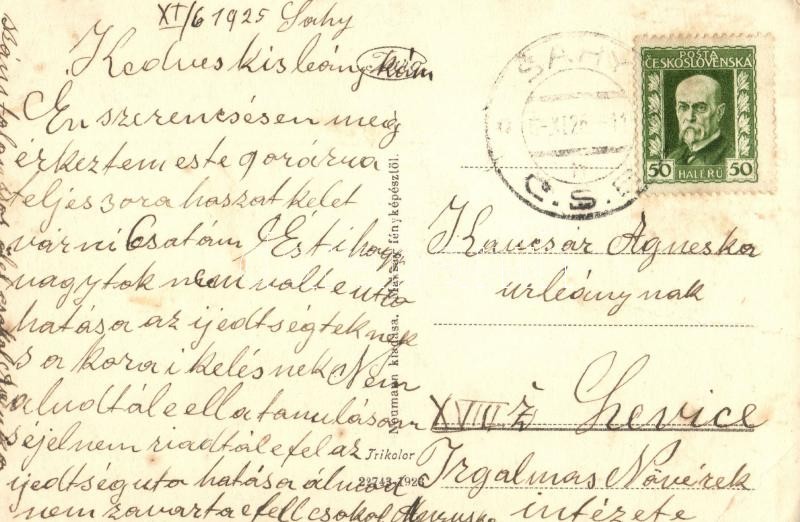 XI/6 1925 Sahy
Kedves kisleánykám
Én szerencsésen meg
érkeztem este 9 órára
teljes 3 ora hoszat kelet
várni Csatám
nagytok nem volt e uto
hatása az ijedtségteknek
s a korai kelésnek Nem
aludtál e el a tanulásom
séjel nem riadtál e fel az
ijedtség uto hatása álmod
nem zavarta e fell csokol
Neumann kiadása, fényképésztől.
Trikolor
22743-1925
SAHY
XI 25
Č.S.
POŠTA
ČESKOSLOVENSKÁ
50 HALÉŘŮ 50
Kaucsár Ágneska
urleánynak
XVIII ž Levice
Irgalmas Növérek
intézete